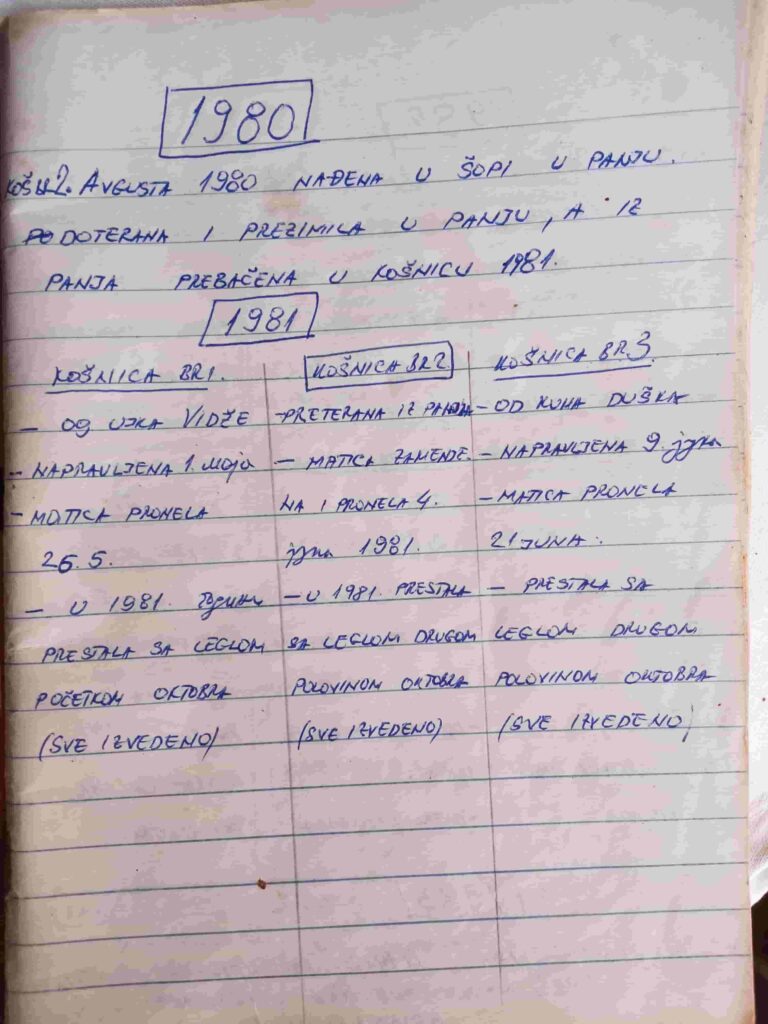 1980
KOŠ 2. AVGUSTA 1980 NAĐENA U ŠOPI U PANJU.
DOTERANA I PREZIMILA U PANJU, A IZ
PANJA PREBAČENA U KOŠNICU 1981.
1981
KOŠNICA BR 1.
- OD UJKA VIDŽE
- NAPRAVLJENA 1. маја
- MATICA PRONELA
26.5.
- U 1981. години
PRESTALA SA LEGLOM
POČETKOM OKTOBRA
(SVE IZVEDENO)
KOŠNICA BR 2
- PRETERANA IZ PANJA
- MATICA ZAMENJE-
NA I PRONELA 4.
јуна 1981.
- U 1981. PRESTALA
SA LEGLOM DRUGOM
POLOVINOM OKTOBRA
(SVE IZVEDENO)
KOŠNICA BR. 3.
- OD KUMA DUŠKA
- NAPRAVLJENA 9. јуна
- MATICA PRONELA
21 JUNA.
- PRESTALA SA
LEGLOM DRUGOM
POLOVINOM OKTOBRA
(SVE IZVEDENO)